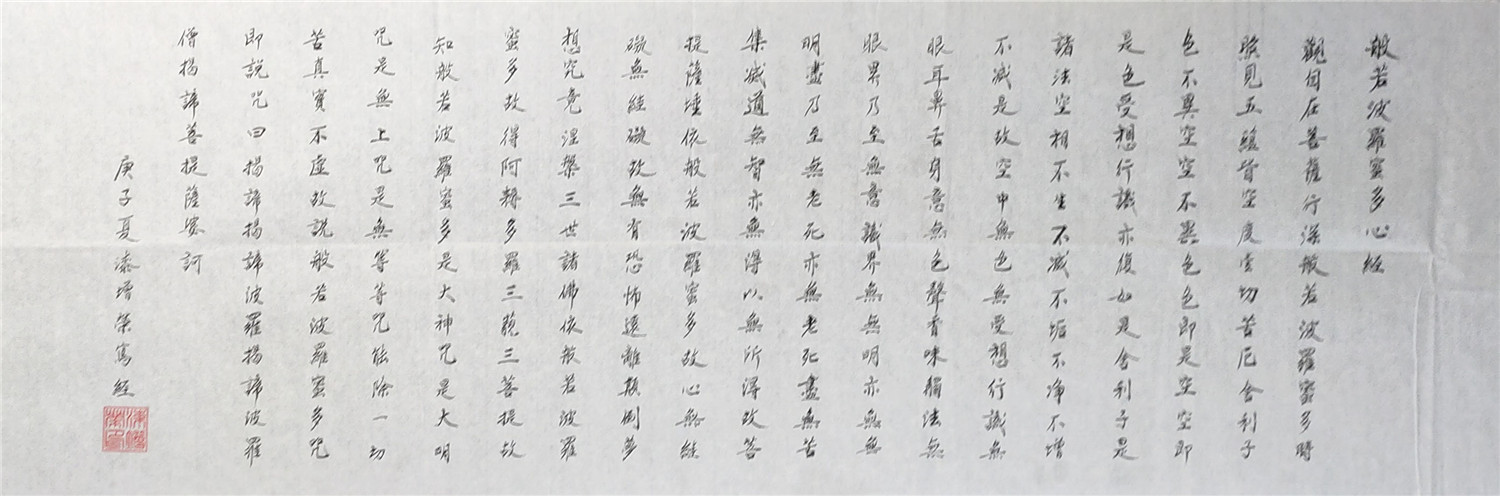 般若波羅蜜多心經
觀自在菩薩行深般若波羅蜜多時
照見五蘊皆空度一切苦厄舍利子
色不異空空不異色色即是空空即
是色受想行識亦復如是舍利子是
諸法空相不生不滅不垢不淨不增
不減是故空中無色無受想行識無
眼耳鼻舌身意無色聲香味觸法無
眼界乃至無意識界無無明亦無無
明盡乃至無老死亦無老死盡無苦
集滅道無智亦無得以無所得故菩
提薩埵依般若波羅蜜多故心無罣
礙無罣礙故無有恐怖遠離顛倒夢
想究竟涅槃三世諸佛依般若波羅
蜜多故得阿耨多羅三藐三菩提故
知般若波羅蜜多是大神咒是大明
咒是無上咒是無等等咒能除一切
苦真實不虛故說般若波羅蜜多咒
即說咒曰揭諦揭諦波羅揭諦波羅
僧揭諦菩提薩婆訶
庚子夏漆增榮寫經